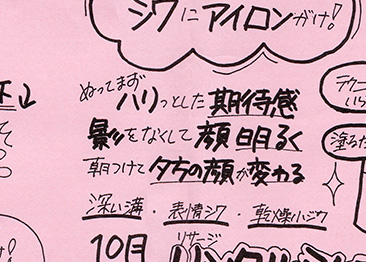 シワにアイロンがけ!
ぬってまず
ハリっとした期待感
影をなくして顔明るく
朝つけて夕方の顔が変わる
深い溝・表情シワ・乾燥小ジワ
10月
リサージ
テカー
いら
塗るた